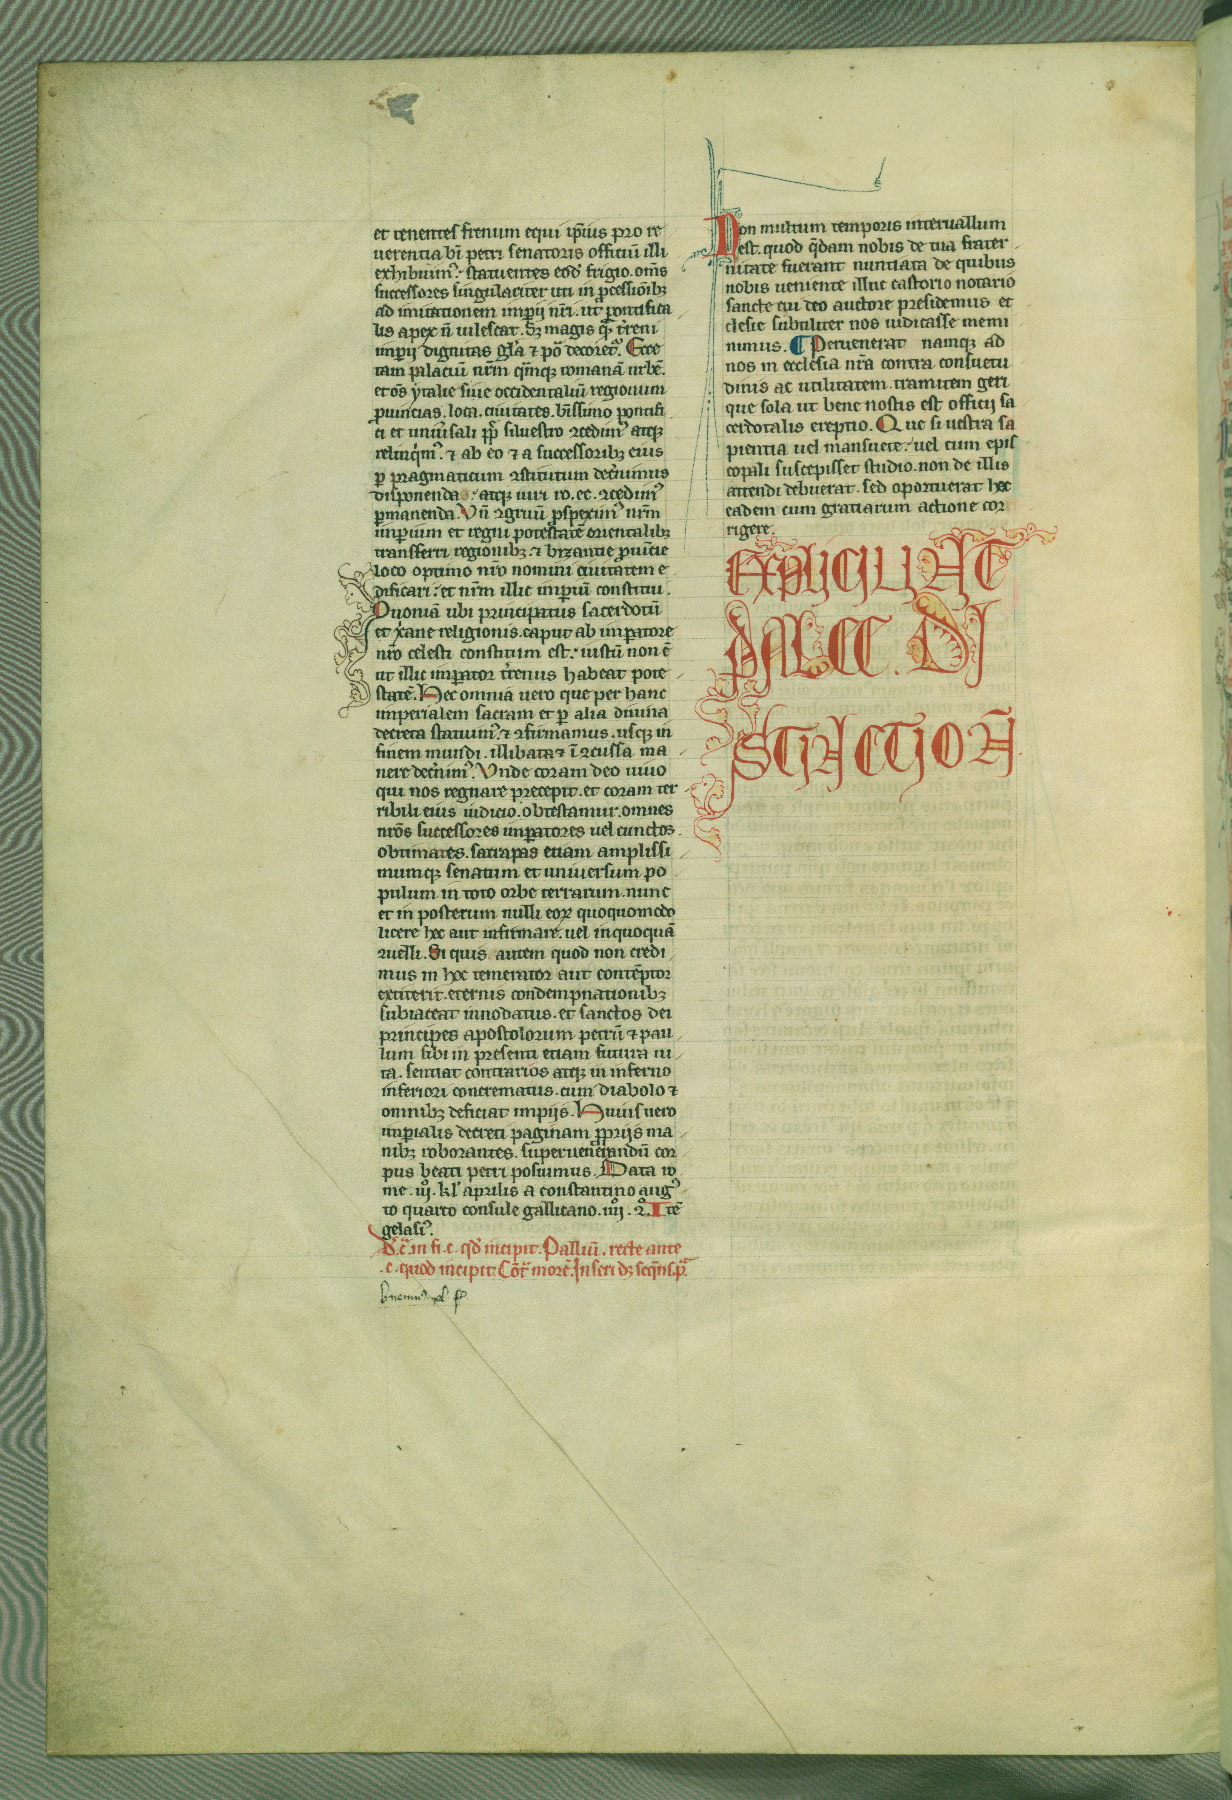 et tenentes frenum equi ip̅ius pro re
uerentia bi̅ petri senatoris officiu̅ illi
exhibuim᷒. statuentes eod̅ frigio. om̅s
successores singulaciter uti in p̱cessio̅ib⁊
ad imitationem imp̱ii nr̅i. ut pontifica
lis apex n̅ uilescat. s⁊ magis q̅ t̅reni
imp̱ii dignitas gl̅a ⁊ po̅ decoret᷒. Ecce
tam palaciu̅ nr̅m q̅mq⁊ romana̅ urbe̅.
et o̅s ytalie siue occidentaliu̅ regionum
p̱uincias. loca. ciuitates. bi̅ssimo pontifi
ci et uniu̅sali pp̅ siluestro ꝯcedim᷒ atq⁊
relinq̅m᷒. ⁊ ab eo ⁊ a successorib⁊ eius
p̱ pragmaticum ꝯstitutum dec̅nimus
disponenda. atq⁊ iuri ro. ec. ꝯcedim᷒
p̱manenda. Vn̅ ꝯgruu̅ p̱spexim᷒ nr̅m
imp̱ium et regni potestate̅ orientalib⁊
transferri regionib⁊. ⁊ bizantie p̱ui̅cie
loco optimo nr̅o nomini ciuitatem e
dificari. et nr̅m illic imp̱iu̅ constitui.
Quonia̅ ubi principatus sacerdotu̅
et xр̅ane religionis caput ab imp̱atore
nr̅o celesti constitum est. iustu̅ non e̅
ut illic imp̱ator t̅renus habeat pote
state̅. Hec omnia uero que per hanc
imperialem sacram et p̱ alia diuina
decreta statuim᷒. ⁊ ꝯfirmamus. usq⁊ in
finem mundi. illibata ⁊ i̅ꝯcussa ma
nere dec̅nim᷒. Vnde coram deo uiuo
qui nos regnare precepit. et coram ter
ribili eius iudicio. obtestamur. omnes
nr̅os successores imp̱atores uel cunctos
obtimates. satrapas etiam amplissi
mumq⁊ senatum et uniuersum po
pulum in toto orbe terrarum. nunc
et in posterum nulli eoꝝ quoquomodo
licere hoc aut infirmare. uel inquoqua̅
ꝯuelli. Si quis autem quod non credi
mus in hoc temerator aut conte̅ptor
extiterit. eternis condempnationib⁊
subiaceat innodatus. et sanctos dei
principes apostolorum petru̅ ⁊ pau
lum sibi in presenti etiam futura ui
ta. sentiat contrarios atq⁊ in inferno
inferiori concrematus. cum diabolo ⁊
omnib⁊ deficiat impiis. Huius uero
imp̱ialis decreti paginam p̱priis ma
nib⁊ roborantes. super uenerandu̅ cor
pus beati petri posuimus. Data ro
me. iii. kl̅ aprilis a constantino aug᷒
to quarto consule gallicano. iiii. ꝯ. Ite̅
gelasi᷒.
D. c̅. in fi. c. qd̅ incipit. Palliu̅. recte ante
.c. quod incipit. Cōt̅ more̅. Inseri d⁊ seque̅s. p̅
Non multum temporis interuallum
est. quod q̅dam nobis de tua frater
nitate fuerant nuntiata de quibus
nobis ueniente illuc castorio notario
sancte cui deo auctore presidemus ec
clesie subtiliter nos iudicasse memi
nimus. ¶ Peruenerat namq⁊ ad
nos in ecclesia nr̅a contra consuetu
dinis ac utilitatem. tramitem geri
que sola ut bene nostis est officij sa
cerdotalis ereptio. Que si uestra sa
pientia uel mansuete. uel cum epis
copali suscepisset studio. non de illis
attendi debuerat. sed oportuerat hoc
eadem cum gratiarum actione cor
rigere.
EXPLICIUNT
PALEE. DI
STINCTION